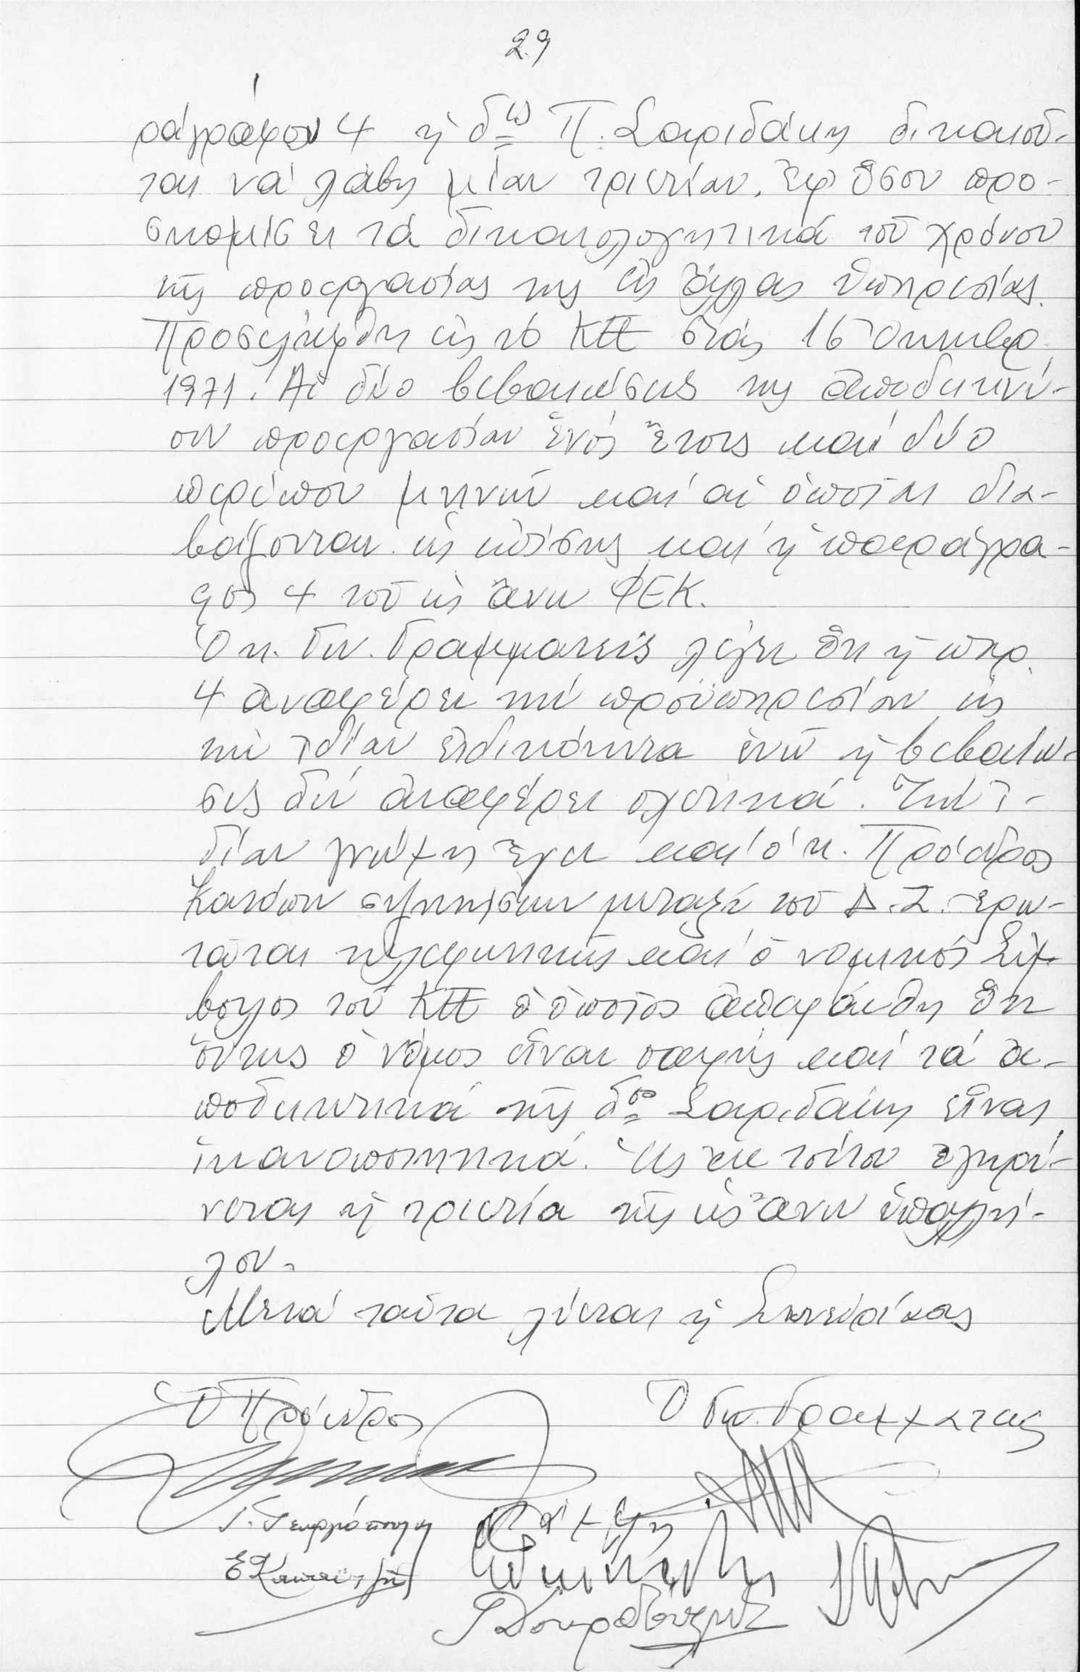 29
ράγραφου 4 ἡ δις Π. Σαριδάκη δικαιοῦ-
ται νά λάβῃ μίαν τριετίαν, ἐφ' ὅσον προ-
σκομίσει τά δικαιολογητικά τοῦ χρόνου
τῆς προεργασίας της εἰς ἄλλας ὑπηρεσίας.
Προσελήφθη εἰς τό ΚΠΕ στάς 16 Ὀκτωβρ.
1971. Αἱ δύο βεβαιώσεις της ἀποδεικνύ-
ουν προεργασίαν ἑνός ἔτους καί δύο
περίπου μηνῶν καί αἱ ὁποῖαι δια-
βάζονται ὡς ἐπίσης καί ἡ παράγρα-
φος 4 τοῦ ὡς ἄνω ΦΕΚ.
Ὁ κ. Γεν. Γραμματεύς λέγει ὅτι ἡ παρ.
4 ἀναφέρει τήν προϋπηρεσίαν εἰς
τήν ἰδίαν εἰδικότητα ἐνῶ ἡ βεβαίω-
σις δέν ἀναφέρει σχετικά. Τήν ἰ-
δίαν γνώμη ἔχει καί ὁ κ. Πρόεδρος
Κατόπιν συζητήσεων μεταξύ τοῦ Δ.Σ. ἐρω-
τᾶται τηλεφωνικῶς καί ὁ νομικός Σύμ-
βουλος τοῦ ΚΠΕ ὁ ὁποῖος ἀπεφάνθη ὅτι
ὄντως ὁ νόμος εἶναι σαφής καί τά ἀ-
ποδεικτικά τῆς δος Σαριδάκη εἶναι
ἱκανοποιητικά. Ὡς ἐκ τούτου ἐγκρί-
νεται ἡ τριετία τῆς ὡς ἄνω ὑπαλλή-
λου.
Μετά ταῦτα λύεται ἡ Συνεδρίασις
Ὁ Πρόεδρος Ὁ Γεν. Γραμματεύς